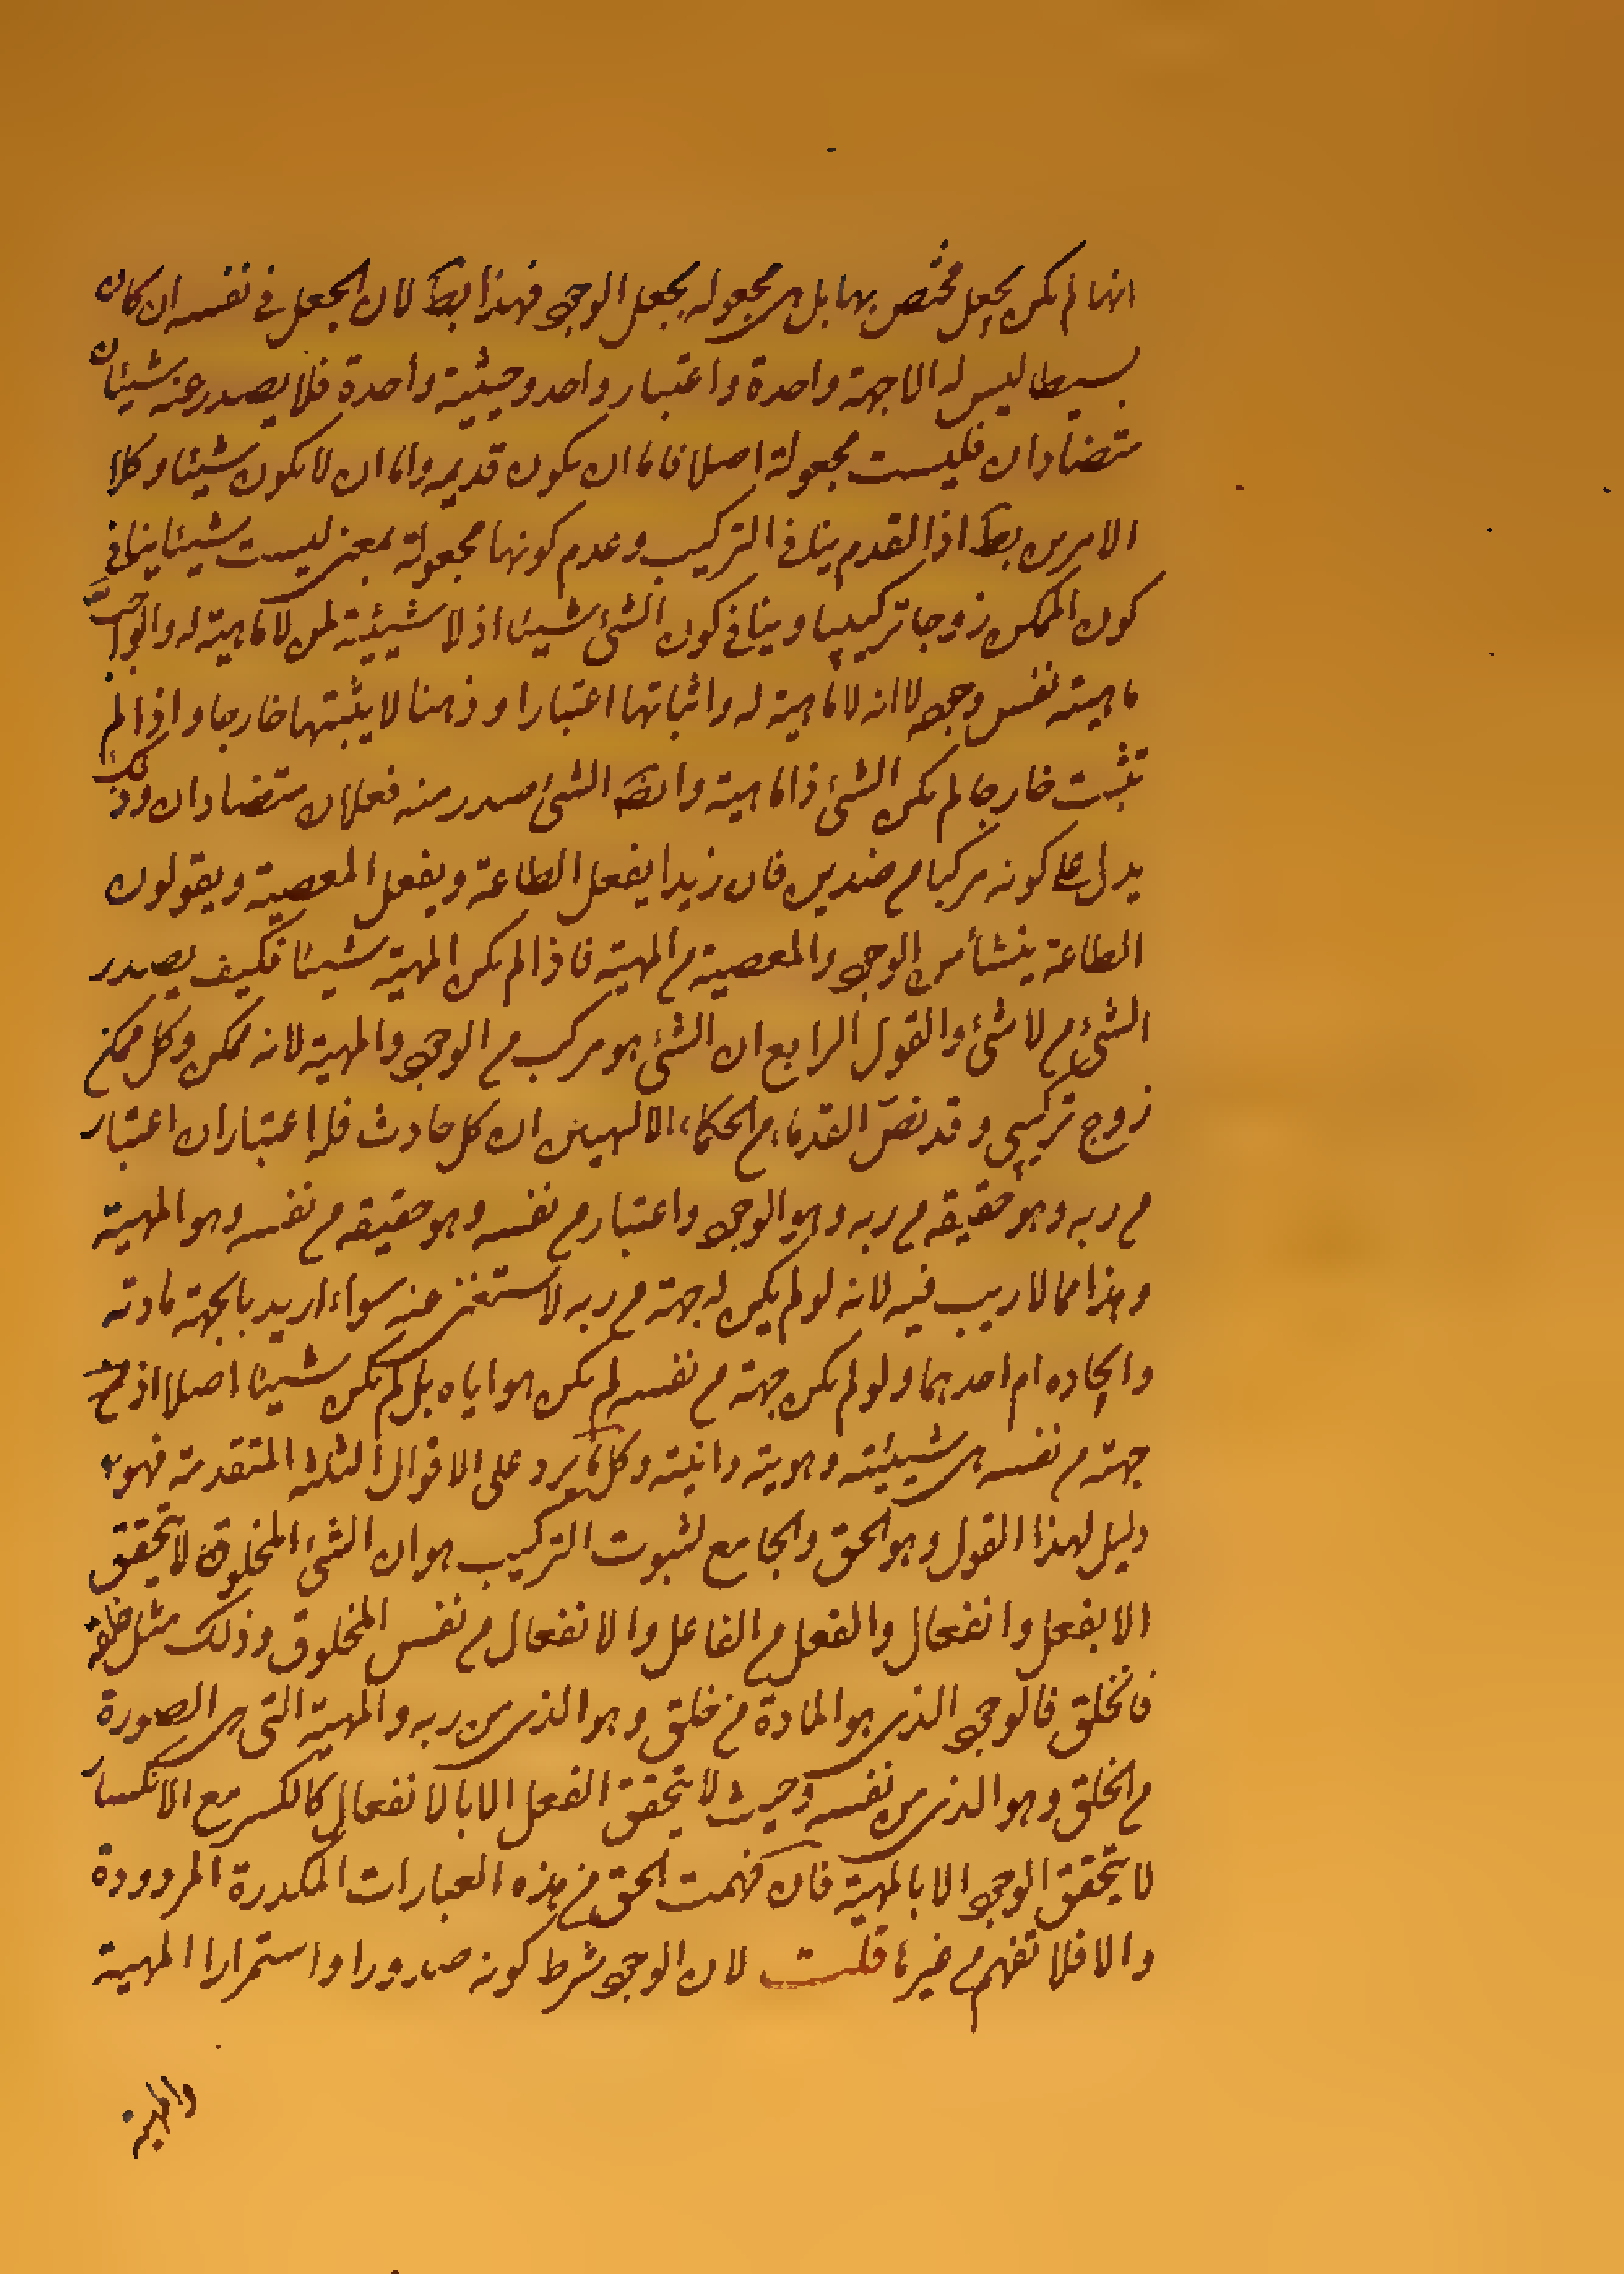 انها لم تكن بجعل مختص بها بل هى مجعوله بجعل الوجود فهذا بط لان الجعل فى نفسه ان كان
بسيطا ليس له الا جهة واحدة واعتبار واحد وحيثية واحدة فلا يصدر عنه شيئان
متضادان فليست مجعولة اصلا فاما ان يكون قديمه واما ان لا يكون شيئا وكلا
الامرين بط اذ القدم ينافى التركيب وعدم كونها مجعولة بمعنى ليست شيئا ينافى
كون الممكن زوجا تركيبيا وينافى كون الشئ شيئا اذ لا شيئية لمن لا ماهية له والواجب
ماهيته نفس وجوده لا انه لا ماهية له واثباتها اعتبارا وذهنا لا يثبتها خارجا واذا لم
تثبت خارجا لم يكن الشئ ذا ماهية وايضا الشئ صدر منه فعلان متضادان وذلك
يدل على كونه مركبا من ضدين فان زيدا يفعل الطاعة ويفعل المعصية ويقولون
الطاعة ينشأ من الوجود والمعصية من المهية فاذا لم يكن المهية شيئا فكيف يصدر
الشئ من لا شئ والقول الرابع ان الشئ هو مركب من الوجود والمهية لانه ممكن وكل ممكن
زوج تركيبى وقد نص القدماء من الحكماء الالهيين ان كل حادث فله اعتباران اعتبار
من ربه وهو حقيقه من ربه وهو الوجود واعتبار من نفسه وهو حقيقه من نفسه وهو المهية
وهذا مما لا ريب فيه لانه لو لم يكن له جهة من ربه لاستغنى عنه سواء اريد بالجهة مادته
وايجاده ام احدهما ولو لم يكن جهة من نفسه لم يكن هو اياه بل لم يكن شيئا اصلا اذ
جهته من نفسه هى شيئيته وهويته وانيته وكل ما يرد على الاقوال الثلثة المتقدمة فهو
دليل لهذا القول وهو الحق والجامع لثبوت التركيب هو ان الشئ المخلوق لا يتحقق
الا بفعل وانفعال والفعل من الفاعل والانفعال من نفس المخلوق وذلك مثل خلقه
فانخلق فالوجود الذى هو المادة من خلق وهو الذى من ربه والمهية التى هى الصورة
من انخلق وهو الذى من نفسه وحيث لا يتحقق الفعل الا بالانفعال كالكسر مع الانكسار
لا يتحقق الوجود الا بالمهية فان فهمت الحق من هذه العبارات المكررة المردودة
والا فلا تفهم من غيرها قلت لان الوجود شرط كونه صدورا واستمرارا المهية
والمهية